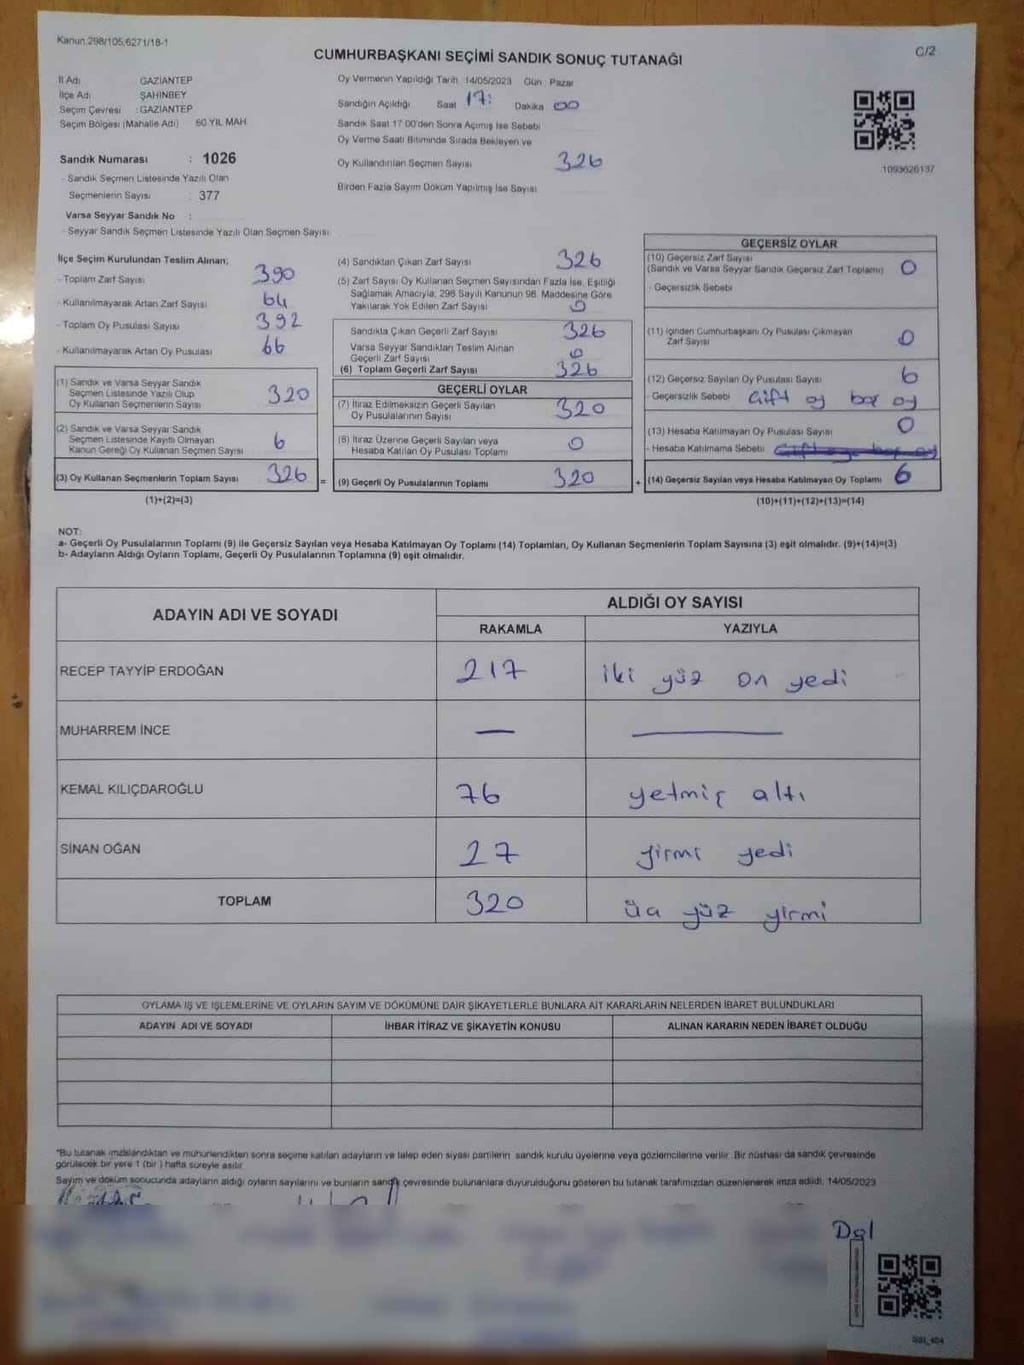 Kanun,298/105,6271/18-1
CUMHURBAŞKANI SEÇİMİ SANDIK SONUÇ TUTANAĞI
C/2
İl Adı GAZİANTEP
İlçe Adı ŞAHİNBEY
Seçim Çevresi : GAZİANTEP
Seçim Bölgesi (Mahalle Adı) 60 YIL MAH.
Sandık Numarası : 1026
- Sandık Seçmen Listesinde Yazılı Olan
Seçmenlerin Sayısı : 377
Varsa Seyyar Sandık No :
- Seyyar Sandık Seçmen Listesinde Yazılı Olan Seçmen Sayısı
Oy Vermenin Yapıldığı Tarih 14/05/2023 Gün Pazar
Sandığın Açıldığı Saat 17: Dakika 00
Sandık Saat 17 00'den Sonra Açımış İse Sebebi
Oy Verme Saati Bitiminde Sırada Bekleyen ve
Oy Kullandırılan Seçmen Sayısı 326
Birden Fazla Sayım Döküm Yapılmış İse Sayısı
1093626137
İlçe Seçim Kurulundan Teslim Alınan;
- Toplam Zarf Sayısı 390
- Kullanılmayarak Artan Zarf Sayısı 64
- Toplam Oy Pusulası Sayısı 392
- Kullanılmayarak Artan Oy Pusulası 66
(1) Sandık ve Varsa Seyyar Sandık
Seçmen Listesinde Yazılı Olup
Oy Kullanan Seçmenlerin Sayısı 320
(2) Sandık ve Varsa Seyyar Sandık
Seçmen Listesinde Kayıtlı Olmayan
Kanun Gereği Oy Kullanan Seçmen Sayısı 6
(3) Oy Kullanan Seçmenlerin Toplam Sayısı 326 =
(1)+(2)=(3)
(4) Sandıktan Çıkan Zarf Sayısı 326
(5) Zarf Sayısı Oy Kullanan Seçmen Sayısından Fazla İse, Eşitliği
Sağlamak Amacıyla, 298 Sayılı Kanunun 98. Maddesine Göre
Yakılarak Yok Edilen Zarf Sayısı 0
Sandıkta Çıkan Geçerli Zarf Sayısı 326
Varsa Seyyar Sandıktan Teslim Alınan
Geçerli Zarf Sayısı 0
(6) Toplam Geçerli Zarf Sayısı 326
GEÇERLİ OYLAR
(7) İtiraz Edilmeksizin Geçerli Sayılan
Oy Pusulalarının Sayısı 320
(8) İtiraz Üzerine Geçerli Sayılan veya
Hesaba Katılan Oy Pusulası Toplamı 0
(9) Geçerli Oy Pusulalarının Toplamı 320 +
GEÇERSİZ OYLAR
(10) Geçersiz Zarf Sayısı
(Sandık ve Varsa Seyyar Sandık Geçersiz Zarf Toplamı) 0
- Geçersizlik Sebebi
(11) İçinden Cumhurbaşkanı Oy Pusulası Çıkmayan
Zarf Sayısı 0
(12) Geçersiz Sayılan Oy Pusulası Sayısı 6
- Geçersizlik Sebebi Çift oy boş oy
(13) Hesaba Katılmayan Oy Pusulası Sayısı 0
- Hesaba Katılmama Sebebi
(14) Geçersiz Sayılan veya Hesaba Katılmayan Oy Toplamı 6
(10)+(11)+(12)+(13)=(14)
NOT:
a- Geçerli Oy Pusulalarının Toplamı (9) ile Geçersiz Sayılan veya Hesaba Katılmayan Oy Toplamı (14) Toplamları, Oy Kullanan Seçmenlerin Toplam Sayısına (3) eşit olmalıdır. (9)+(14)=(3)
b- Adayların Aldığı Oyların Toplamı, Geçerli Oy Pusulalarının Toplamına (9) eşit olmalıdır.
ADAYIN ADI VE SOYADI ALDIĞI OY SAYISI
RAKAMLA YAZIYLA
RECEP TAYYİP ERDOĞAN 217 iki yüz on yedi
MUHARREM İNCE —
KEMAL KILIÇDAROĞLU 76 yetmiş altı
SİNAN OĞAN 27 yirmi yedi
TOPLAM 320 üç yüz yirmi
OYLAMA İŞ VE İŞLEMLERİNE VE OYLARIN SAYIM VE DÖKÜMÜNE DAİR ŞİKAYETLERLE BUNLARA AİT KARARLARIN NELERDEN İBARET BULUNDUKLARI
ADAYIN ADI VE SOYADI İHBAR İTİRAZ VE ŞİKAYETİN KONUSU ALINAN KARARIN NEDEN İBARET OLDUĞU
"Bu tutanak imzalandıktan ve mühürlendikten sonra seçime katılan adayların ve talep eden siyasi partilerin sandık kurulu üyelerine veya gözlemcilerine verilir. Bir nüshası da sandık çevresinde
görülecek bir yere 1 (bir ) hafta süreyle asılır
Sayım ve döküm sonucunda adayların aldığı oyların sayılarını ve bunların sandık çevresinde bulunanlara duyurulduğunu gösteren bu tutanak tarafımızdan düzenlenerek imza edildi. 14/05/2023